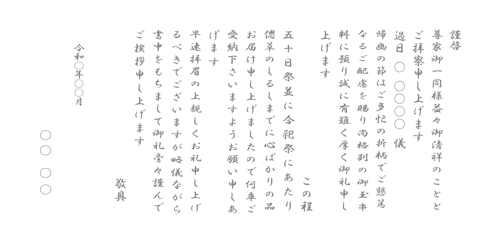 謹啓
尊家御一同様益々御清祥のことと
ご拝察申し上げます
過日 〇 〇〇〇〇 儀
帰幽の節はご多忙の折柄でご懇篤
なるご配慮を賜り尚格別の御玉串
料に預り誠に有難く厚く御礼申し
上げます
この程
五十日祭並に合祀祭にあたり
偲草のしるしまでに心ばかりの品
お届け申し上げましたので何卒ご
受納下さいますようお願い申しあ
げます
早速拝眉の上親しくお礼申し上げ
るべきでございますが略儀ながら
書中をもちまして御礼旁々謹んで
ご挨拶申し上げます
敬具
令和〇年〇〇月
〇〇 〇〇